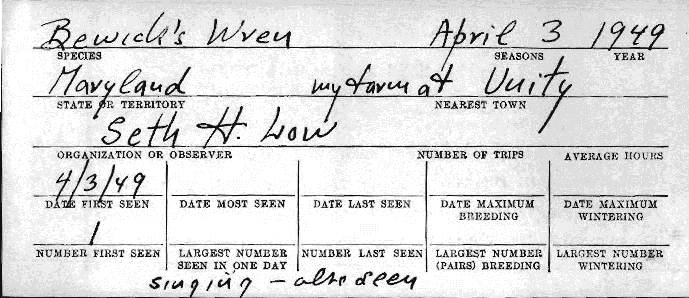 Bewick's Wren April 3 1949
SPECIES SEASONS YEAR
Maryland my farm at Unity
STATE OR TERRITORY NEAREST TOWN
Seth H. Low
ORGANIZATION OR OBSERVER NUMBER OF TRIPS AVERAGE HOURS
4/3/49
DATE FIRST SEEN DATE MOST SEEN DATE LAST SEEN DATE MAXIMUM BREEDING DATE MAXIMUM WINTERING
1
NUMBER FIRST SEEN LARGEST NUMBER SEEN IN ONE DAY NUMBER LAST SEEN LARGEST NUMBER (PAIRS) BREEDING LARGEST NUMBER WINTERING
singing - also seen